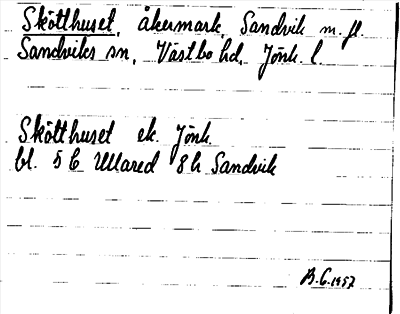 Skötthuset, åkermark, Sandvik m. fl.
Sandviks sn, Västbo hd, Jönk. l.
Skötthuset ek. Jönk.
bl. 5 C Ullared 8 h Sandvik
B.G. 1957